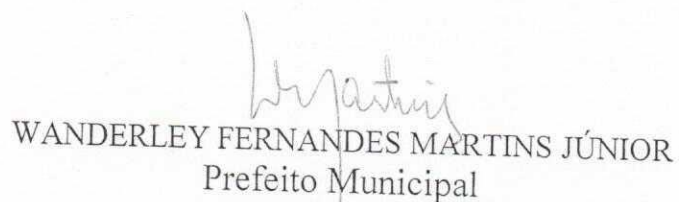 WANDERLEY FERNANDES MARTINS JÚNIOR
Prefeito Municipal